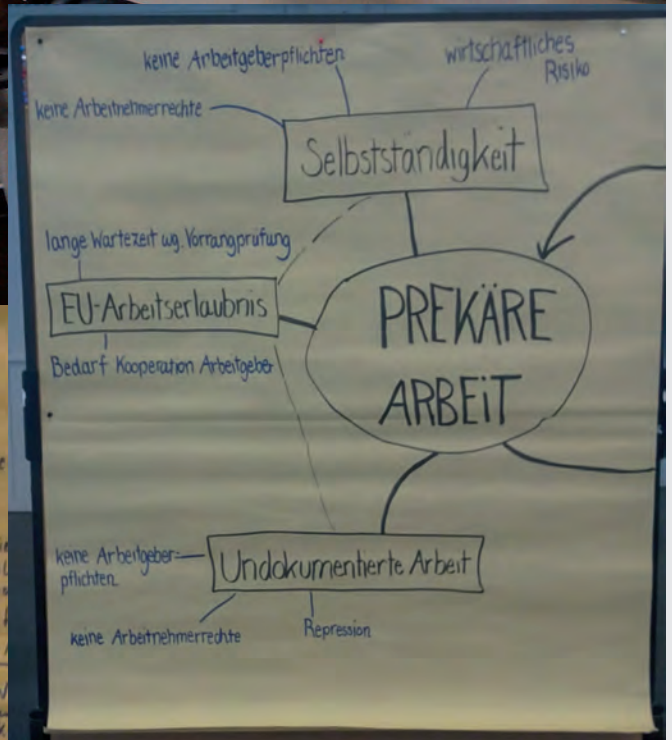 keine Arbeitgeberpflichten
wirtschaftliches
Risiko
keine Arbeitnehmerrechte
Selbstständigkeit
lange Wartezeit wg. Vorrangprüfung
EU-Arbeitserlaubnis
Bedarf Kooperation Arbeitgeber
PREKÄRE
ARBEiT
keine Arbeitgeber-
pflichten
Undokumentierte Arbeit
keine Arbeitnehmerrechte
Repression